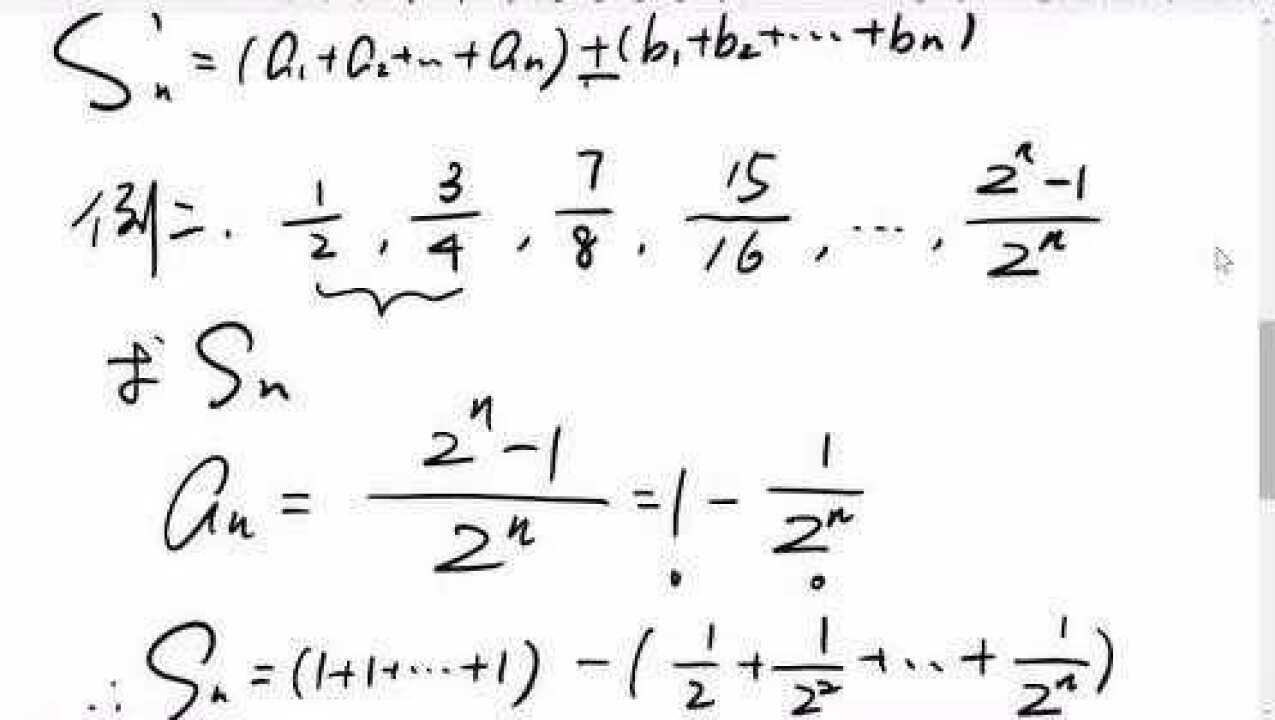 S'ₙ = (a₁+a₂+…+aₙ)±(b₁+b₂+…+bₙ)
例二. 1/2, 3/4, 7/8, 15/16, …, (2ⁿ-1)/2ⁿ
求 Sₙ
aₙ = (2ⁿ-1)/2ⁿ = 1 - 1/2ⁿ
∴ Sₙ = (1+1+…+1) - (1/2 + 1/2² + … + 1/2ⁿ)